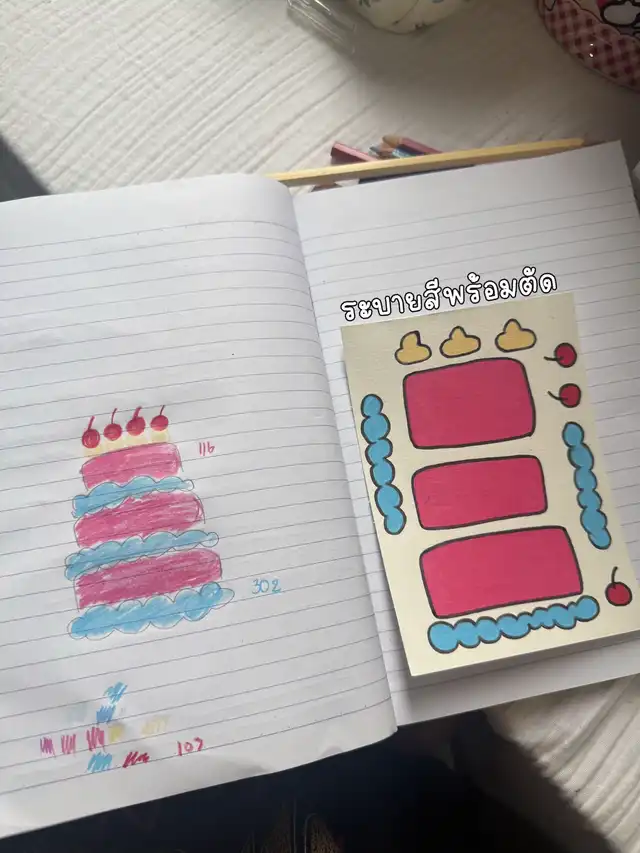 ระบายสีพร้อมตัด
116
302
107